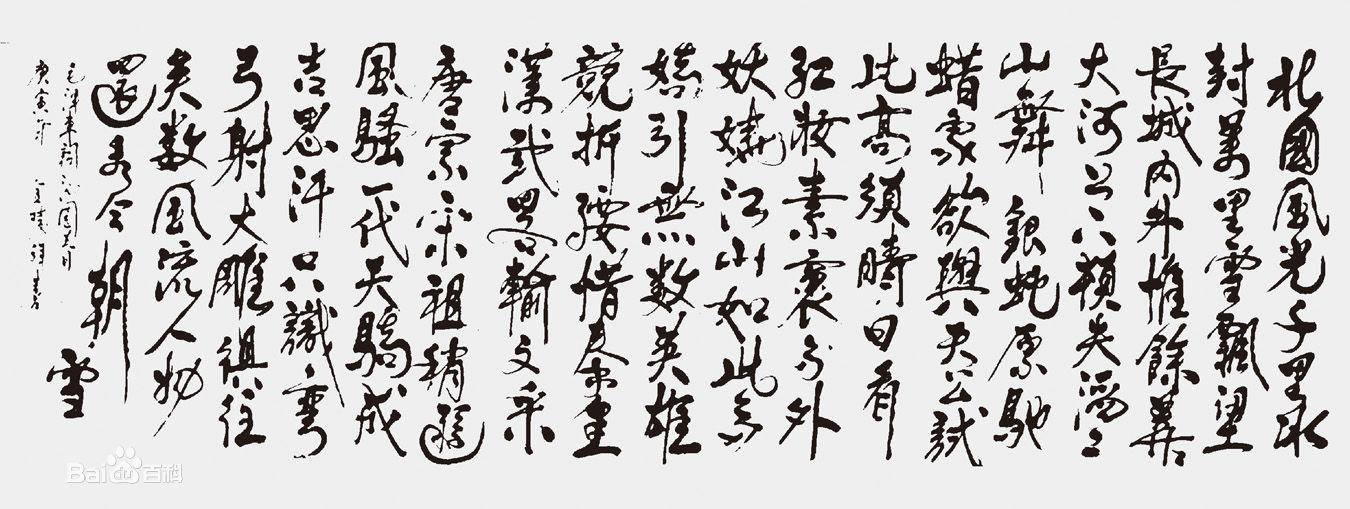 北國風光千里冰
封萬里雪飄望
長城内外惟餘莽々
大河上下頓失滔々
山舞銀蛇原馳
蜡象欲與天公試
比高須晴日看
紅妝素裹分外
妖嬈江山如此多
嬌引無数英雄
競折腰惜秦皇
漢武略輸文采
唐宗宋祖稍遜
風騷一代天驕成
吉思汗只識彎
弓射大雕俱往
矣数風流人物
還看今朝
雪
毛澤東詞沁園春
庚寅年
Baidu百科